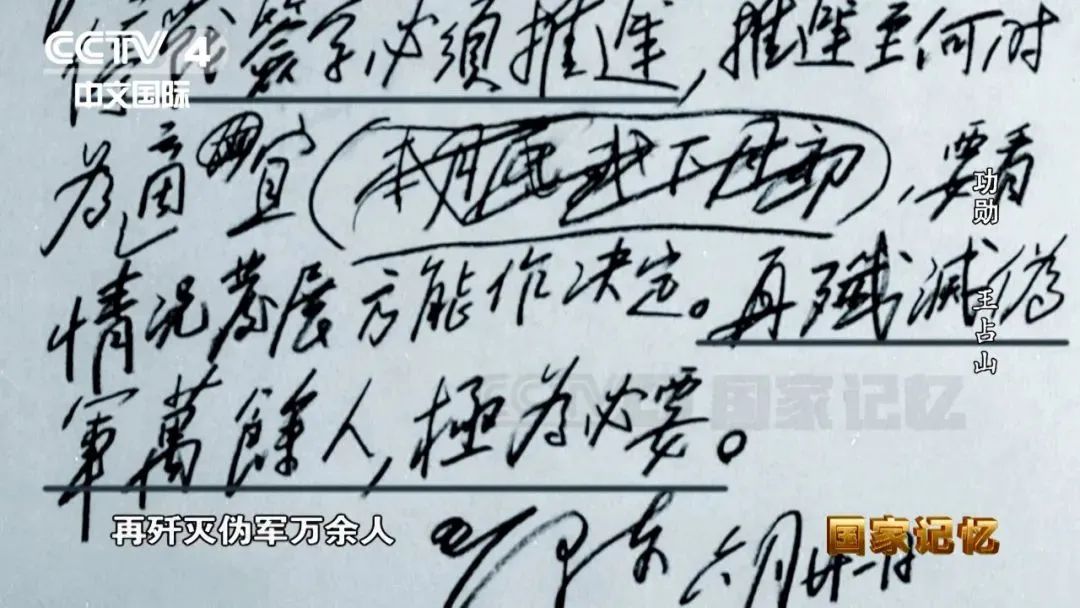 CCTV 4
中文国际
停戰簽字必須推遲，推遲至何时
為适宜（本月底或下月初），要看
情况發展方能作决定。再殲滅偽
軍萬餘人，極為必要。
毛泽东 六月廿一日
功勋 王占山
CCTV 4 国家记忆
再歼灭伪军万余人
国家记忆